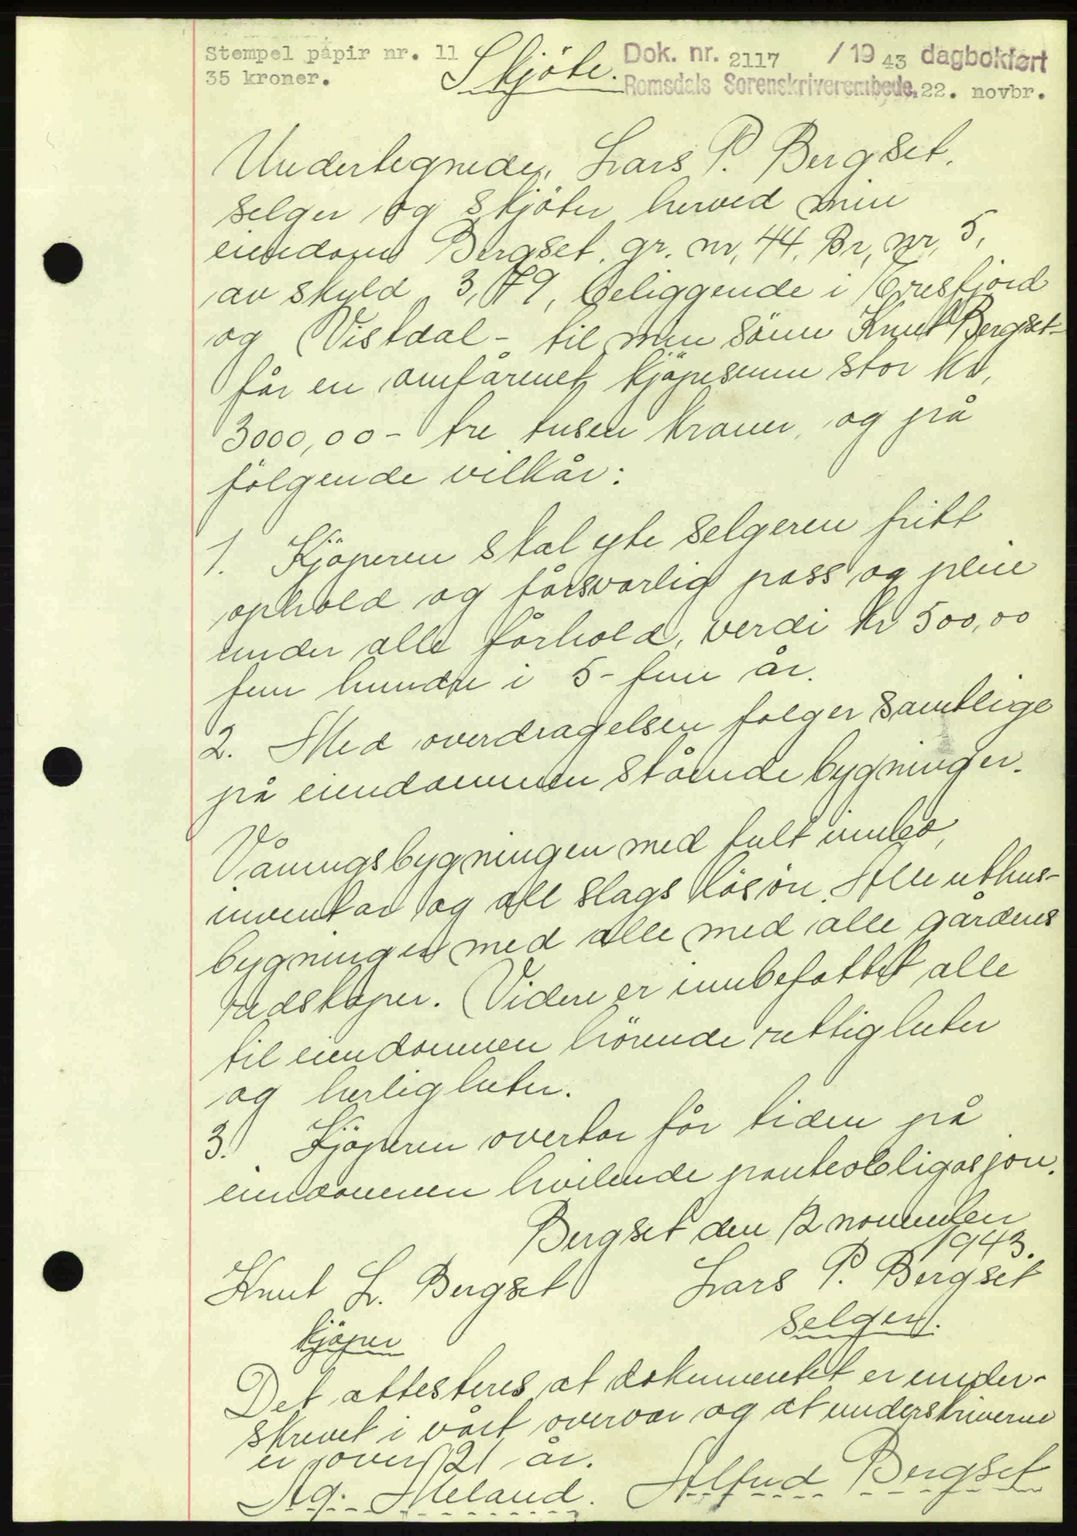 Stempel papir nr. 11
35 kroner.
Skjöte.
Dok. nr. 2117 / 19 43 dagbokført
Romsdals Sorenskriverembede, 22. novbr.
Undertegnede, Lars P. Bergset,
selger og skjöter herved min
eiendom Bergset, gr. nr, 44, Br, nr, 5,
av skyld 3,79, beliggende i Tresfjord
og Vistdal - til min sönn Knut Bergset -
får en omfårenet kjöpesum stor kr,
3000,00 - tre tusen kroner, og på
fölgende vilkår:
1. Kjöperen skal yte selgeren fritt
ophold og fårsvarlig pass og pleie
under alle fårhold, verdi kr 500,00
fem hundre i 5 - fem år.
2. Med overdragelsen fölger samtlige
på eiendommen stående bygninger.
Våningsbygningen med fult innbo,
inventar og all slags lösöre. Alle uthus-
bygninger med alle med alle gårdens
redskaper. Videre er innbefattet alle
til eiendommen hörende rettigheter
og herligheter.
3. Kjöperen overtar får tiden på
eiendommen hvilende panteobligasjon.
Bergset den 12 november
1943.
Knut L. Bergset Lars P. Bergset
kjöper selger.
Det attesteres at dokumentet er under-
skrevet i vårt overvær og at underskriverne
er over 21 år.
Ag. Meland. Alfred Bergset